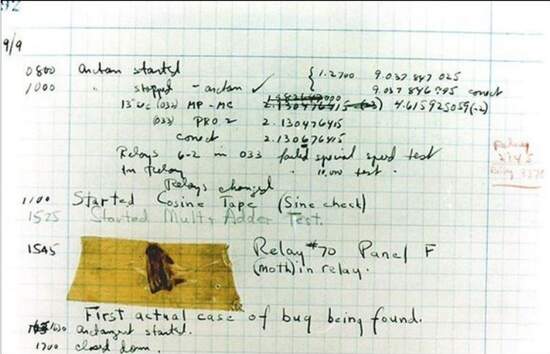 92
9/9
0800 Antan started
1000 " stopped - antan ✓ { 1.2700 9.037 847 025
9.037 846 795 correct
13"uc (032) MP - MC 2.130476415 4.615925059(-2)
(033) PRO 2 2.130476415
correct 2.130676415
Relays 6-2 in 033 failed special speed test
In Relay " 11,000 test.
Relay
3370
Relays changed
1100 Started Cosine Tape (Sine check)
1525 Started Mult+Adder Test.
1545 Relay #70 Panel F
(moth) in relay.
First actual case of bug being found.
1630 antangent started.
1700 closed down.